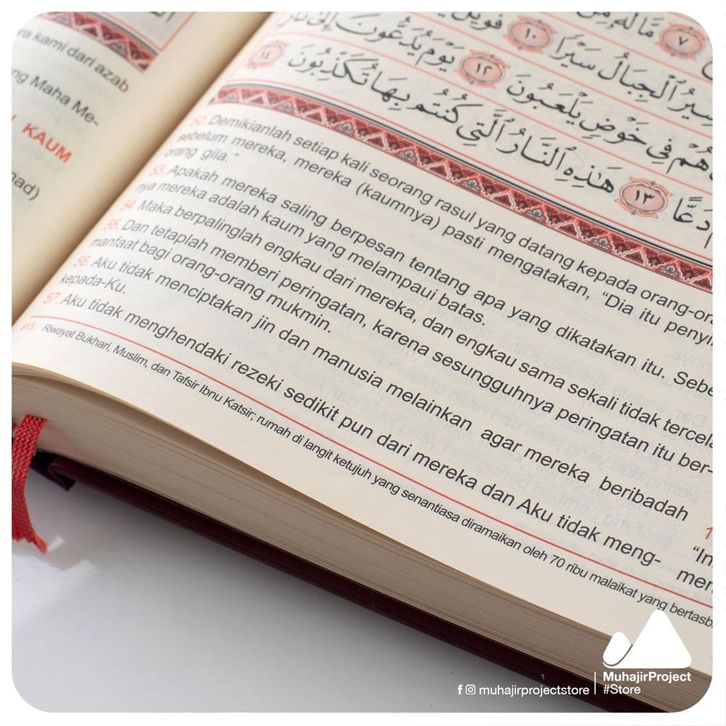 ra kami dari azab
ng Maha Me-
KAUM
ad)
٧ مَّا لَهُۥ مِن
سِيرُ ٱلْجِبَالُ سَيْرًا ١٠ فَوَيْلٌ
هُمْ فِى خَوْضٍ يَلْعَبُونَ ١٢ يَوْمَ يُدَعُّونَ إِلَىٰ نَارِ
دَعًّا ١٣ هَٰذِهِ ٱلنَّارُ ٱلَّتِى كُنتُم بِهَا تُكَذِّبُونَ ١٤
52. Demikianlah setiap kali seorang rasul yang datang kepada orang-ora
sebelum mereka, mereka (kaumnya) pasti mengatakan, "Dia itu penyi
orang gila."
53. Apakah mereka saling berpesan tentang apa yang dikatakan itu. Sebe
nya mereka adalah kaum yang melampaui batas.
54. Maka berpalinglah engkau dari mereka, dan engkau sama sekali tidak tercela
55. Dan tetaplah memberi peringatan, karena sesungguhnya peringatan itu ber-
manfaat bagi orang-orang mukmin.
56. Aku tidak menciptakan jin dan manusia melainkan agar mereka beribadah
kepada-Ku.
57. Aku tidak menghendaki rezeki sedikit pun dari mereka dan Aku tidak meng-
"In
men
815 Riwayat Bukhari, Muslim, dan Tafsir Ibnu Katsir; rumah di langit ketujuh yang senantiasa diramaikan oleh 70 ribu malaikat yang bertasb
muhajirprojectstore
MuhajirProject
#Store